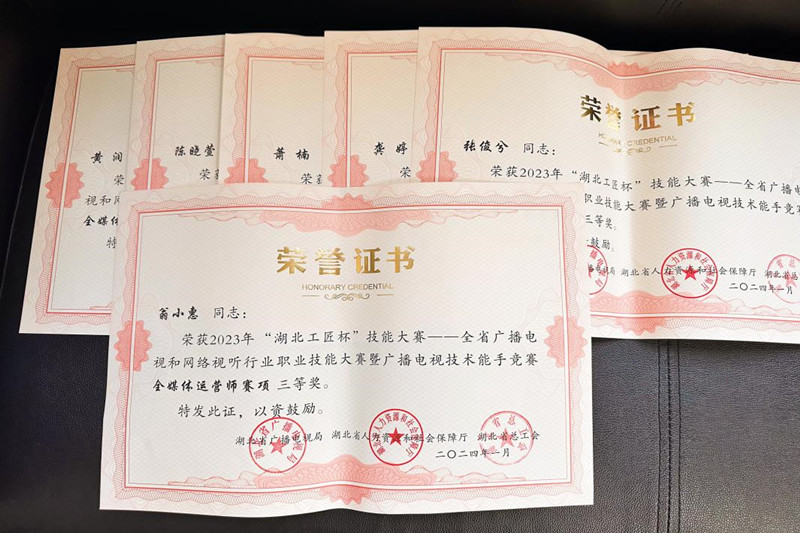 黄润
荣
视和网
全媒体
特
陈晓萱
荣
萧楠
荣获
龚婷
荣获
荣誉证书
HONORARY CREDENTIAL
张俊兮 同志：
荣获2023年“湖北工匠杯”技能大赛——全省广播电
职业技能大赛暨广播电视技术能手竞赛
三等奖。
鼓励。
湖北省人力资源和社会保障厅 湖北省总
二〇二四年一月
荣誉证书
HONORARY CREDENTIAL
翁小惠 同志：
荣获2023年“湖北工匠杯”技能大赛——全省广播电
视和网络视听行业职业技能大赛暨广播电视技术能手竞赛
全媒体运营师赛项 三等奖。
特发此证，以资鼓励。
湖北省广播电视局 湖北省人力资源和社会保障厅 湖北省总工会
二〇二四年一月